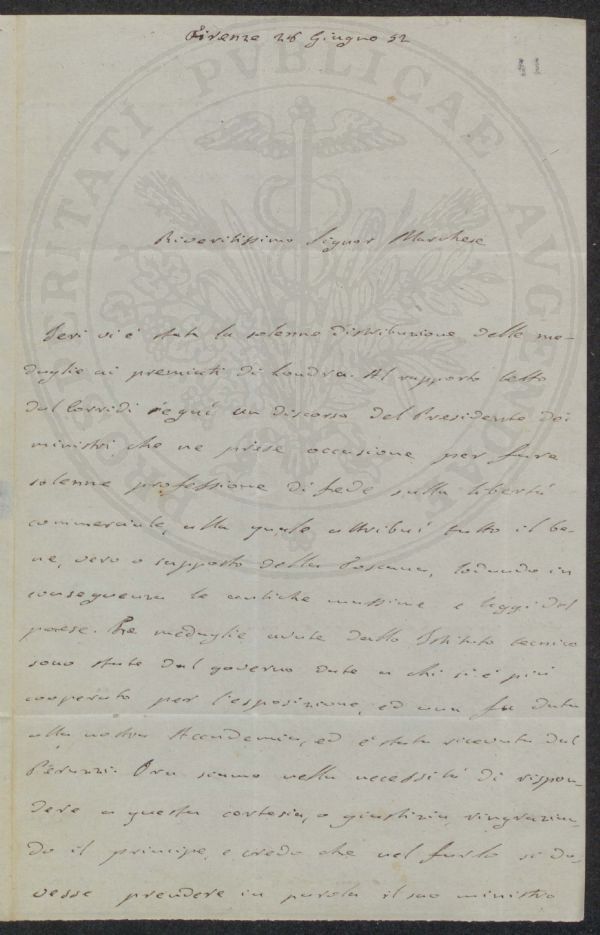 Firenze 26 Giugno 52
11
PROSPERITATI PUBLICAE AUGENDAE
Riveritissimo Signor Marchese
Ieri vi è stata la solenne distribuzione delle me-
daglie ai premiati di Londra. Al rapporto letto
dal Corridi seguì un discorso del Presidente dei
ministri che ne prese occasione per fare
solenne professione di fede sulla libertà
commerciale, alla quale attribuì tutto il be-
ne, vero o supposto della Toscana, lodando in
conseguenza le antiche massime e leggi del
paese. Tre medaglie avute dallo Istituto tecnico
sono state dal governo date a chi si è più
cooperato per l'esposizione, ed una fu data
alla nostra Accademia, ed è stata ricevuta dal
Peruzzi. Ora siamo nella necessità di rispon-
dere a questa cortesia, o giustizia, ringrazian-
do il principe, e credo che nel farlo si do-
vesse prendere in parola il suo ministro